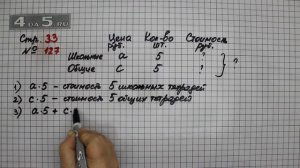 4DA5.RU
Стр. 33 Цена Кол-во Стоимость
№ 127 руб. шт. руб.
Школьные a 5 ?
Общие c 5 ? ?
1) a·5 – стоимость 5 школьных тетрадей
2) c·5 – стоимость 5 общих тетрадей
3) a·5 + c·